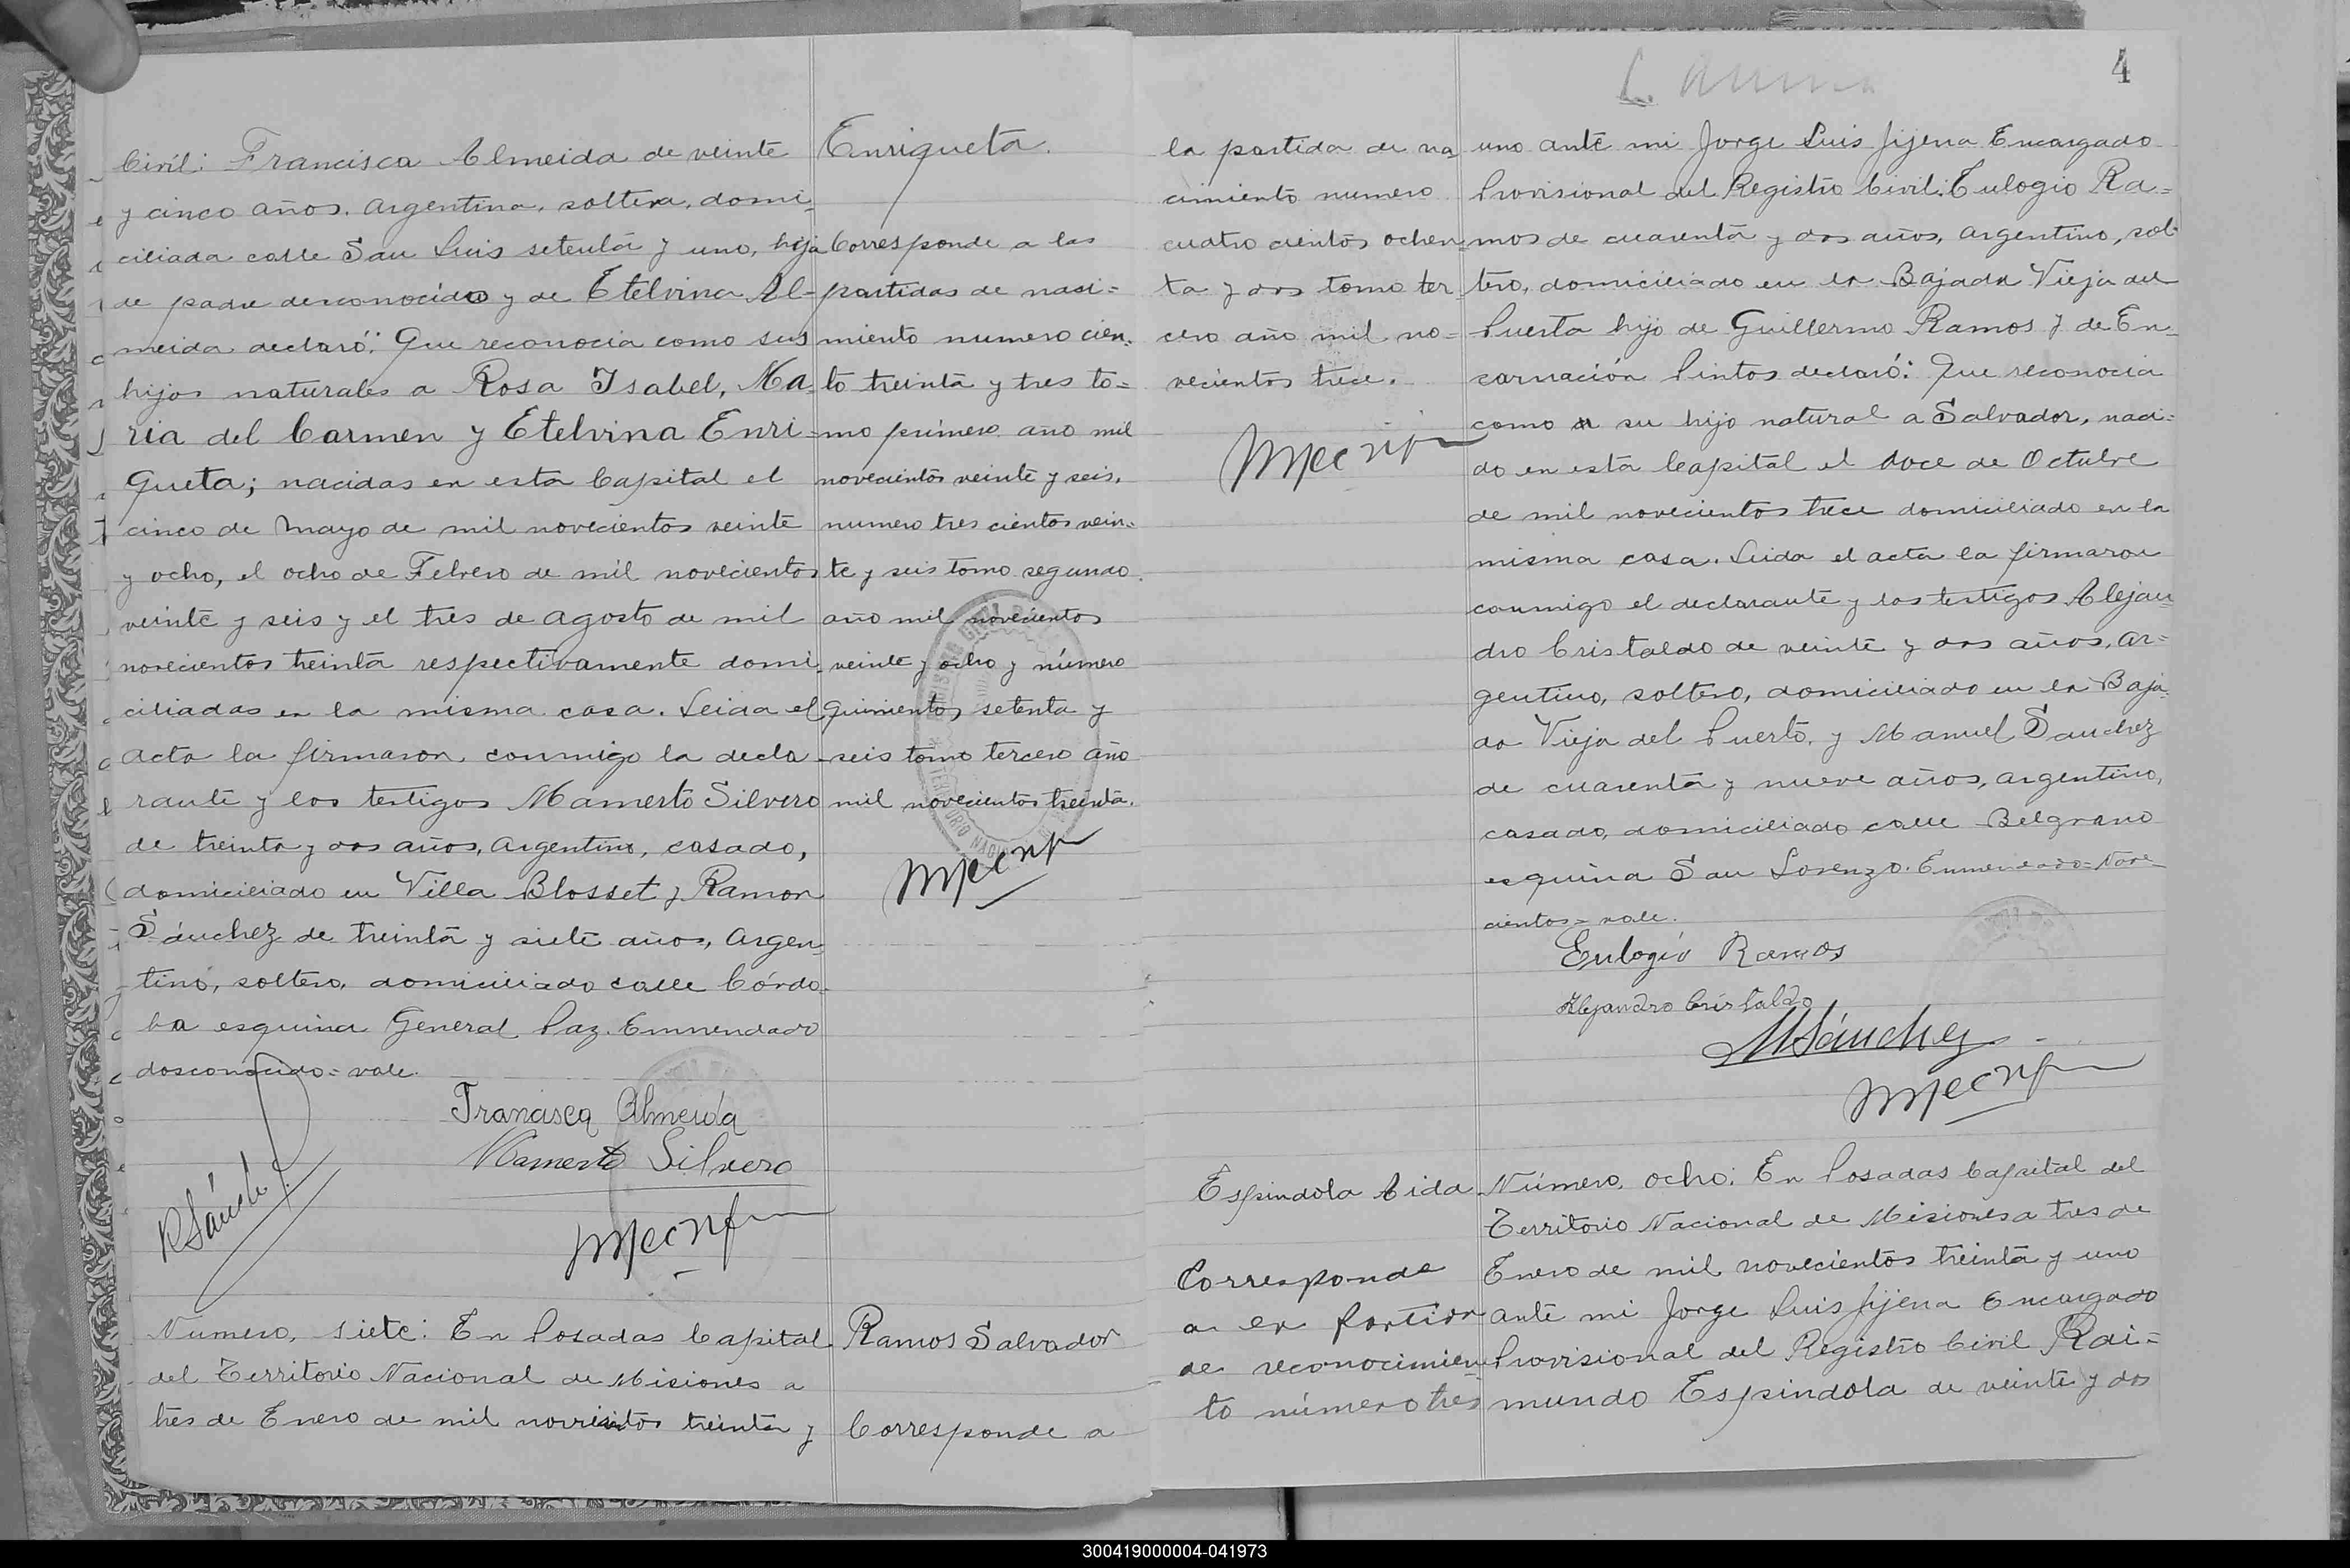 Civil: Francisca Almeida de veinte
y cinco años, argentina, soltera, domi-
ciliada calle San Luis setenta y uno, hija
de padre desconocido y de Etelvina Al-
meida declaró: Que reconocia como sus
hijos naturales a Rosa Isabel, Ma-
ria del Carmen y Etelvina Enri-
queta; nacidas en esta Capital el
cinco de Mayo de mil novecientos veinte
y ocho, el ocho de Febrero de mil novecientos
veinte y seis y el tres de agosto de mil
novecientos treinta respectivamente domi-
ciliadas en la misma casa. Leida el
acta la firmaron, conmigo la decla-
rante y los testigos Mamerto Silvero
de treinta y dos años, argentino, casado,
domiciliado en Villa Blosset y Ramon
Sánchez de treinta y siete años, argen-
tino, soltero, domiciliado calle Córdo-
ba esquina General Paz. Enmendado
desconocido=vale.
Francisca Almeida
Mamerto Silvero
R Sánchez
Enriqueta.
Corresponde a las
partidas de naci=
miento numero cien-
to treinta y tres to=
mo primero año mil
novecientos veinte y seis,
numero tres cientos vein-
te y seis tomo segundo
año mil novecientos
veinte y ocho y número
quinientos setenta y
seis tomo tercero año
mil novecientos treinta.
Numero, siete: En Posadas Capital
del Territorio Nacional de Misiones a
tres de Enero de mil novecientos treinta y
Ramos Salvador
Corresponde a
4
la partida de na-
cimiento numero
cuatro cientos ochen-
ta y dos tomo ter-
cero año mil no=
vecientos trece.
uno ante mi Jorge Luis Jijena Encargado
Provisional del Registro Civil: Eulogio Ra=
mos de cuarenta y dos años, argentino, sol-
tero, domiciliado en la Bajada Vieja del
Puerto hijo de Guillermo Ramos y de En-
carnación Pintos declaró: Que reconocia
como a su hijo natural a Salvador, naci=
do en esta Capital el doce de Octubre
de mil novecientos trece domiciliado en la
misma casa. Leida el acta la firmaron
conmigo el declarante y los testigos Alejan-
dro Cristaldo de veinte y dos años, ar=
gentino, soltero, domiciliado en la Baja-
da Vieja del Puerto, y Manuel Sanchez
de cuarenta y nueve años, argentino,
casado, domiciliado calle Belgrano
esquina San Lorenzo. Enmendado=Nove-
cientos=vale.
Eulogio Ramos
Alejandro Cristaldo
M Sánchez
Espindola Aida
Corresponde
a la partida
de reconocimien-
to número tres
Número, ocho: En Posadas Capital del
Territorio Nacional de Misiones a tres de
Enero de mil novecientos treinta y uno
ante mi Jorge Luis Jijena Encargado
Provisional del Registro Civil Rai=
mundo Espindola de veinte y dos
300419000004-041973